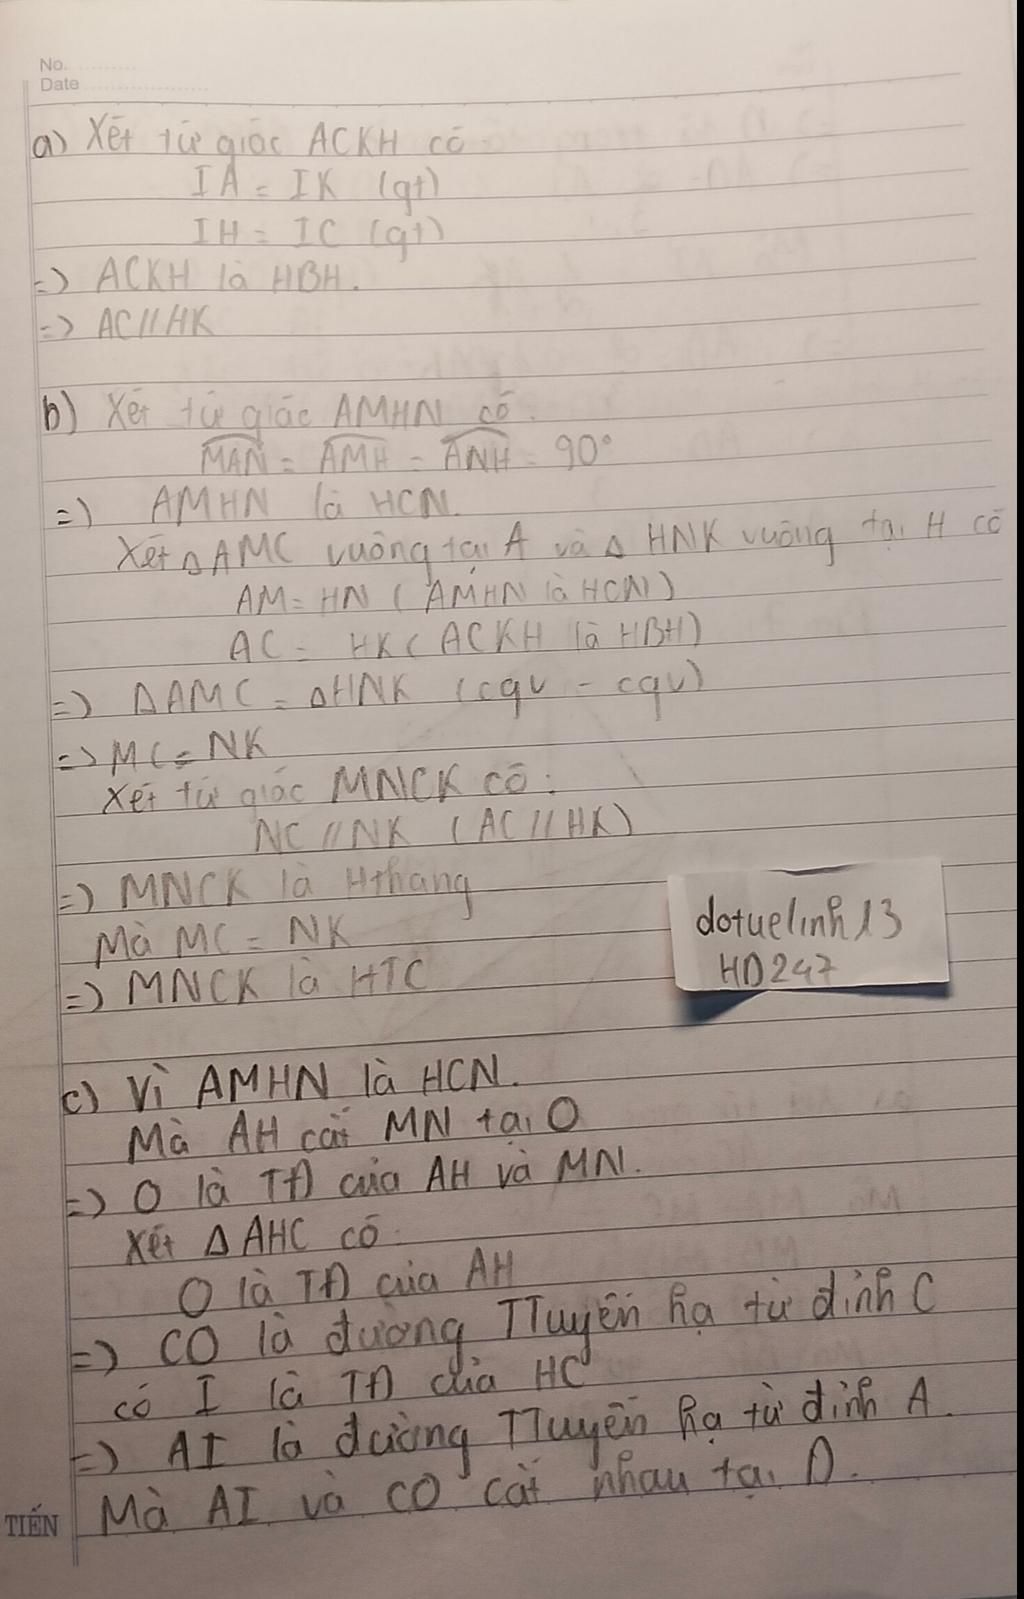 No.
Date
a) Xét tứ giác ACKH có
IA = IK (gt)
IH = IC (gt)
=> ACKH là HBH.
=> AC // HK
b) Xét tứ giác AMHN có:
MAN = AMH = ANH = 90°
=> AMHN là HCN.
Xét Δ AMC vuông tại A và Δ HNK vuông tại H có
AM = HN (AMHN là HCN)
AC = HK (ACKH là HBH)
=> ΔAMC = ΔHNK (cgv - cgv)
=> MC = NK
Xét tứ giác MNCK có:
NC // NK (AC // HK)
=> MNCK là Hthang
Mà MC = NK
=> MNCK là HTC
dotuelinh13
HD247
c) Vì AMHN là HCN.
Mà AH cắt MN tại O
=> O là TĐ của AH và MN.
Xét Δ AHC có:
O là TĐ của AH
=> CO là đường TTuyến hạ từ đỉnh C
có I là TĐ của HC
=> AI là đường TTuyến hạ từ đỉnh A.
Mà AI và CO cắt nhau tại D.
TIẾN